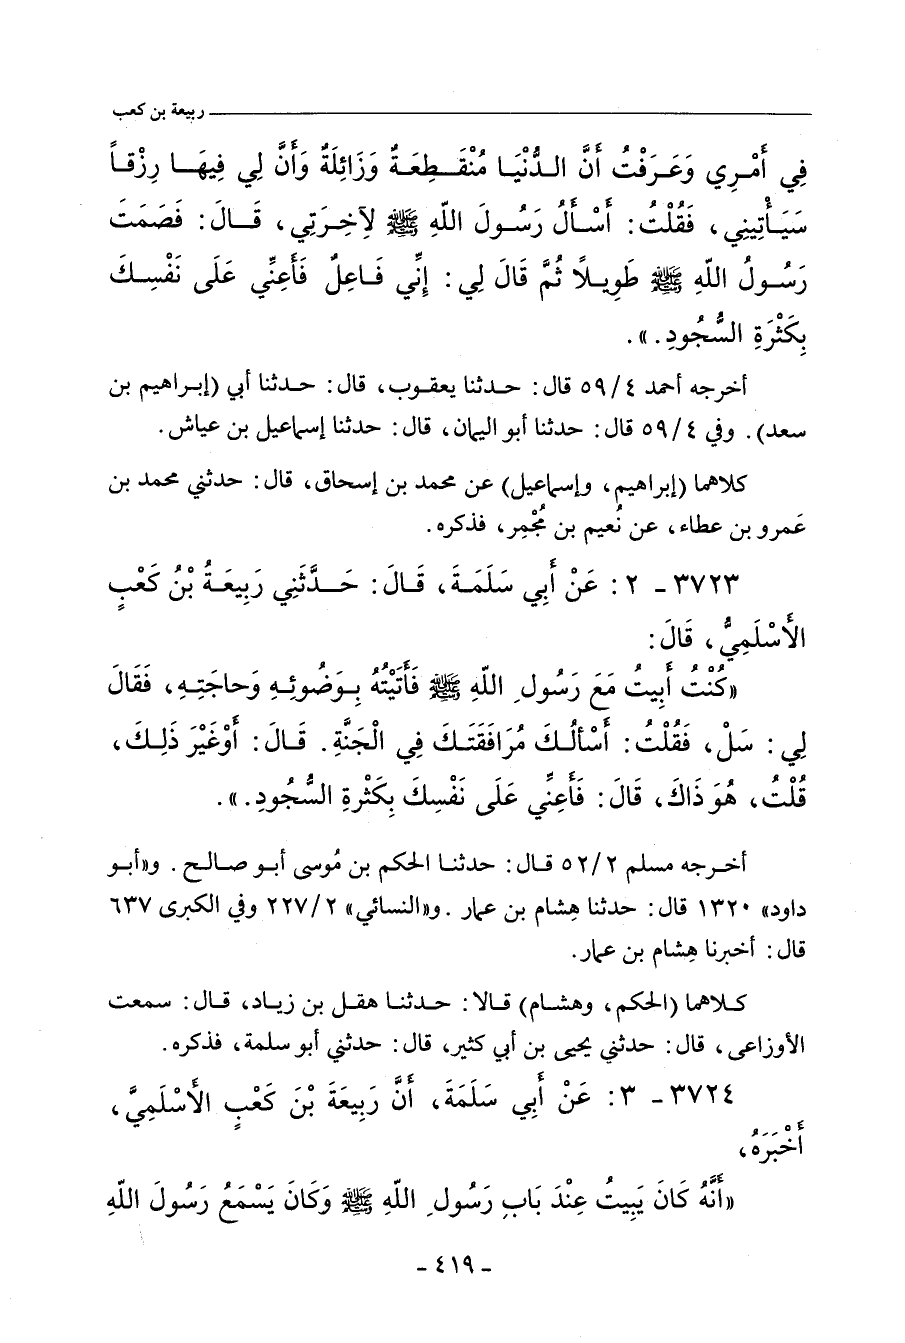 ربيعة بن كعب
فِي أَمْرِي وَعَرَفْتُ أَنَّ الدُّنْيَا مُنْقَطِعَةٌ وَزَائِلَةٌ وَأَنَّ لِي فِيهَا رِزْقاً
سَيَأْتِينِي، فَقُلْتُ: أَسْأَلُ رَسُولَ اللّهِ ﷺ لآِخِرَتِي، قَالَ: فَصَمَتَ
رَسُولُ اللّهِ ﷺ طَوِيلاً ثُمَّ قَالَ لِي: إِنِّي فَاعِلٌ فَأَعِنِّي عَلَى نَفْسِكَ
بِكَثْرَةِ السُّجُودِ.».
أخرجه أحمد ٤/٥٩ قال: حدثنا يعقوب، قال: حدثنا أبي (إبراهيم بن
سعد). وفي ٤/٥٩ قال: حدثنا أبو اليمان، قال: حدثنا إسماعيل بن عياش.
كلاهما (إبراهيم، وإسماعيل) عن محمد بن إسحاق، قال: حدثني محمد بن
عَمرو بن عطاء، عن نُعيم بن مُجْمِر، فذكره.
٣٧٢٣ - ٢: عَنْ أَبِي سَلَمَةَ، قَالَ: حَدَّثَنِي رَبِيعَةُ بْنُ كَعْبٍ
الأَسْلَمِيُّ، قَالَ:
«كُنْتُ أَبِيتُ مَعَ رَسُولِ اللّهِ ﷺ فَأَتَيْتُهُ بِوَضُوئِهِ وَحاجَتِهِ، فَقَالَ
لِي: سَلْ، فَقُلْتُ: أَسْأَلُكَ مُرَافَقَتَكَ فِي الْجَنَّةِ. قَالَ: أَوْغَيْرَ ذَلِكَ،
قُلْتُ، هُوَ ذَاكَ، قَالَ: فَأَعِنِّي عَلَى نَفْسِكَ بِكَثْرةِ السُّجُودِ.».
أخرجه مسلم ٢/٥٢ قال: حدثنا الحكم بن مُوسى أبو صالح. و«أبو
داود» ١٣٢٠ قال: حدثنا هِشام بن عمار .و«النسائي» ٢/٢٢٧ وفي الكبرى ٦٣٧
قال: أخبرنا هِشام بن عمار.
كلاهما (الحكم، وهشام) قالا: حدثنا هقل بن زياد، قال: سمعت
الأوزاعى، قال: حدثني يحيى بن أبي كثير، قال: حدثني أبو سلمة، فذكره.
٣٧٢٤ - ٣: عَنْ أَبِي سَلَمَةَ، أَنَّ رَبِيعَةَ بْنَ كَعْبٍ الأَسْلَمِيَّ،
أَخْبَرَهُ،
«أَنَّهُ كَانَ يَبِيتُ عِنْدَ بَابِ رَسُولِ اللّهِ ﷺ وَكَانَ يَسْمَعُ رَسُولَ اللّهِ
- ٤١٩ -